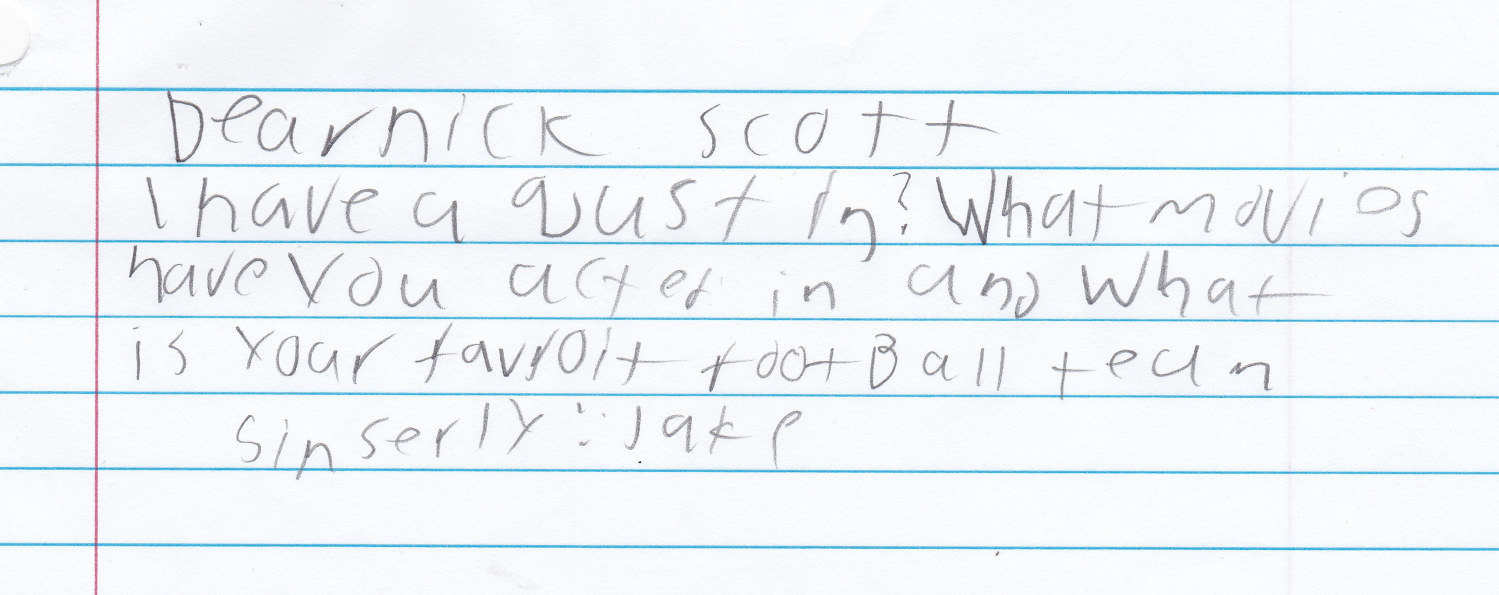 Dear nick scott
I have a qustin? What movios
have you acted in and What
is your favroit footBall tean
sinserly: Jake